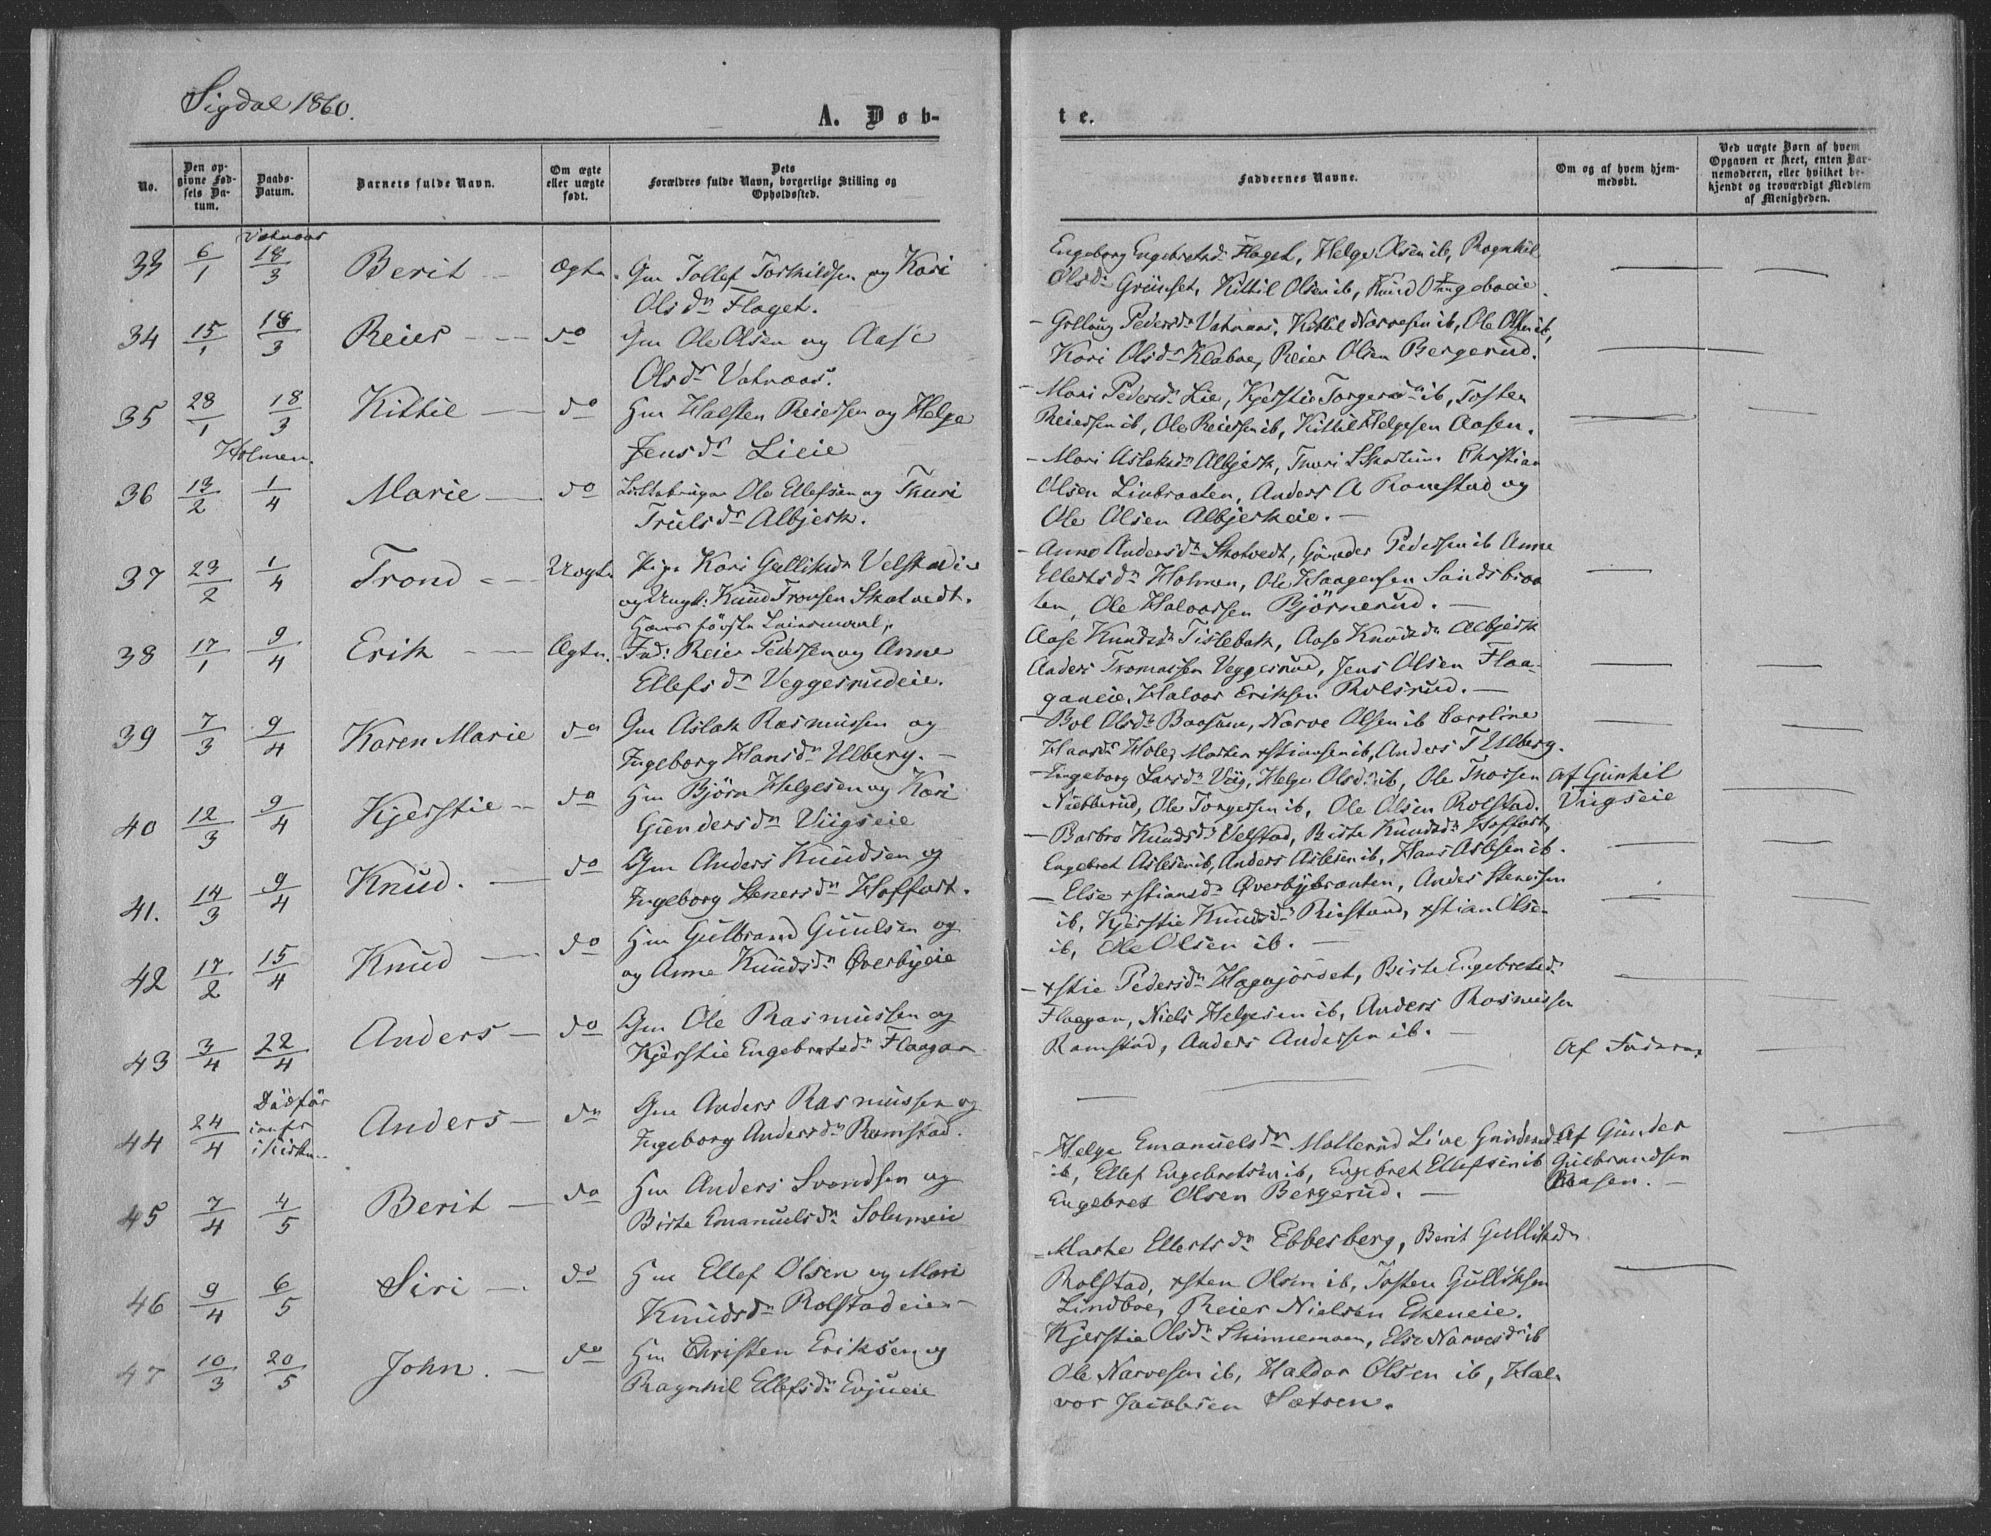 Sigdal 1860.
A. Døb-
te.
No.
Den op-
givne Fød-
sels Da-
tum.
Daabs-
Datum.
Barnets fulde Navn.
Om ægte
eller uægte
født.
Dets
Forældres fulde Navn, borgerlige Stilling og
Opholdssted.
Faddernes Navne.
Om og af hvem hjem-
medøbt.
Ved uægte Børn af hvem
Opgaven er skeet, enten Bar-
nemoderen, eller hvilket be-
kjendt og troværdigt Medlem
af Menigheden.
Vatnaas
33 6/1 18/3 Berit Ægte. Gm Tollef Torkildsen og Kari
Olsdr Flaget.
Engeborg Engebretsdr Flaget, Helge Olsen ib, Ragnhil
Olsdr Grünset, Kittil Olsen ib, Knud
34 15/1 18/3 Reier do Gm Ole Olsen og Aase
Olsdr Vatnaas.
Pedersdr Vatnaas, Kittil Narvesen ib, Ole Olsen ib,
Kari Olsdr Kloboe, Reier Olsen Bergerud.
35 28/1 18/3 Kittil do Hm Halsten Reiersen og Helge
Jensdr Lieie
Mari Pedersdr Lie, Kjerstie Torgersdr ib, Tosten
Reiersen ib, Ole Reiersen ib, Kittil Helgesen Aasen.
Holmen.
36 13/2 1/4 Marie do Ole Ellefsen og Thuri
Trulsdr Albjerk.
Mari Aslaksdr Albjerk, Thuri Christian
Olsen Linbraaten, Anders A Ramstad og
Ole Olsen Albjerkeie.
37 23/2 1/4 Trond Uægte Pige Kari Galliksdr Velstadeie
og Ungk: Knud Tronsen Skatvedt.
Hans første Leiermaal.
Anne Andersdr Skotvedt, Günder Pedersen ib Anne
Ellertsdr Holmen, Ole Haagensen Sandsbraa
ten, Ole Halvorsen Bjørnerud.
38 17/1 9/4 Erik Ægte. Ind: Reier Pedersen og Anne
Ellefsdr Veggerudeie.
Aase Knudsdr Tislebak, Aase Knudsdr Albjerk
Anders Tromassen Veggerud, Jens Olsen Flaa-
ganeie, Halvor Eriksen Rolsrud.
39 7/3 9/4 Karen Marie do Gm Aslak Rasmussen og
Ingeborg Hansdr Ulberg.
Bol Olsdr Baasum, Narve Olsen ib Caroline
Hansdr Hole, Morten xstiansen ib, Anders T Ulberg.
40 12/3 9/4 Kjerstie do Hm Bjørn Helgesen og Kari
Gundersdr Viigseie
Engeborg Larsdr Viig, Helge Olsdr ib, Ole Thorsen
Nubberud, Ole Torgersen ib, Ole Olsen Rolstad.
Af Gunhil
Viigseie
41. 14/3 9/4 Knud. do Gm Anders Knudsen og
Ingeborg Stenersdr Hoffart.
Barbro Knudsdr Velstad, Birte Knudsdr Hoffart,
Engebret Aslesen ib, Anders Aslesen ib, Hans Aslesen ib.
42 17/2 15/4 Knud do Hm Gulbrand Guulsen og
og Anne Knudsdr Øverbyeie
Else xstiansdr Øverbybraaten, Anders Stenersen
ib, Kjerstie Knudsdr Riistand, xstian Olsen
ib, Ole Olsen ib.
43 3/4 22/4 Anders do Gm Ole Rasmussen og
Kjerstie Engebretsdr Flaagan
xstie Pedersdr Hagajordet, Birte Engebretsdr
Flaagan, Niels Helgesen ib, Anders Rasmussen
Ramstad, Anders Andersen ib.
44 24/4 Dødfør
i Kirken
Anders do Gm Anders Rasmussen og
Ingeborg Andersdr Ramstad.
Af Faderen
45 7/4 4/5 Berit do Hm Anders Svendsen og
Birte Emanuelsdr Solumeie
Helge Emanuelsdr Mollerud Live Gundersdr
ib, Ellef Engebretsen ib, Engebret Ellefsen ib
Engebret Olsen Bergerud.
Af Günder
Gulbrandsen
Aasen.
46 9/4 6/5 Siri do Hm Ellef Olsen og Mari
Knudsdr Rolstadeie
Marte Ellertsdr Ebbesberg, Berit Gulliksdr
Rolstad, xsten Olsen ib, Tosten Gulliksen
Lindboe, Reier Nielsen Ekeneie.
47 10/3 20/5 John. do Hm Christen Eriksen og
Ragnhil Ellefsdr Evjueie
Kjerstie Olsdr Skinnemoen, Else Narvesdr ib
Ole Narvesen ib, Haldor Olsen ib, Hal-
vor Jacobsen Sætren.